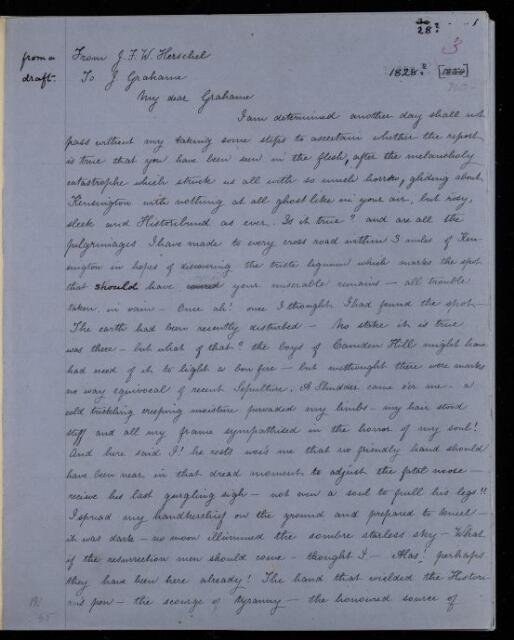 28?
1
3
from a
draft.
From J. F. W. Herschel
To J. Grahame
1828?
My dear Grahame
I am determined another day shall not
pass without my taking some steps to ascertain whether the report
is true that you have been seen in the flesh, after the melancholy
catastrophe which struck us all with so much horror, gliding about
Kensington with nothing at all ghost like in your air, but rosy,
sleek and Historibund as ever. Is it true? and are all the
pilgrimages I have made to every cross road within 3 miles of Ken-
sington in hopes of discovering the triste lignum which marks the spot
that should have your miserable remains — all trouble
taken in vain — Once ah! once I thought I had found the spot —
The earth had been recently disturbed — No stake it is true
was there — but what of that? the boys of Camden Hill might have
had need of it to light a bon fire — but methought there were marks
no way equivocal of recent Sepulture. A Shudder came o'er me — a
cold trickling creeping moisture pervaded my limbs — my hair stood
stiff and all my frame sympathised in the horror of my soul!
And here said I! he rests woe's me that no friendly hand should
have been near in that dread moment to adjust the fatal noose —
receive his last gurgling sigh — not even a soul to pull his legs!!
I spread my handkerchief on the ground and prepared to kneel —
it was dark — no moon illumined the sombre starless sky — What
if the resurrection men should come — thought I — Alas! perhaps
they have been here already! The hand that wielded the Histori-
an's pen — the scourge of tyranny — the honoured source of